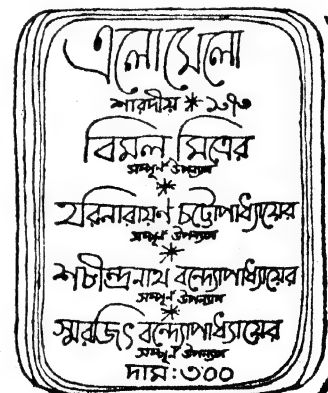 এলোমেলো
শারদীয় * ১৩৭৩
বিমল মিত্রের
সম্পূর্ণ উপন্যাস
*
হরিনারায়ণ চট্টোপাধ্যায়ের
সম্পূর্ণ উপন্যাস
*
শচীন্দ্রনাথ বন্দ্যোপাধ্যায়ের
সম্পূর্ণ উপন্যাস
*
স্মরজিৎ বন্দ্যোপাধ্যায়ের
সম্পূর্ণ উপন্যাস
দাম : ৩০০